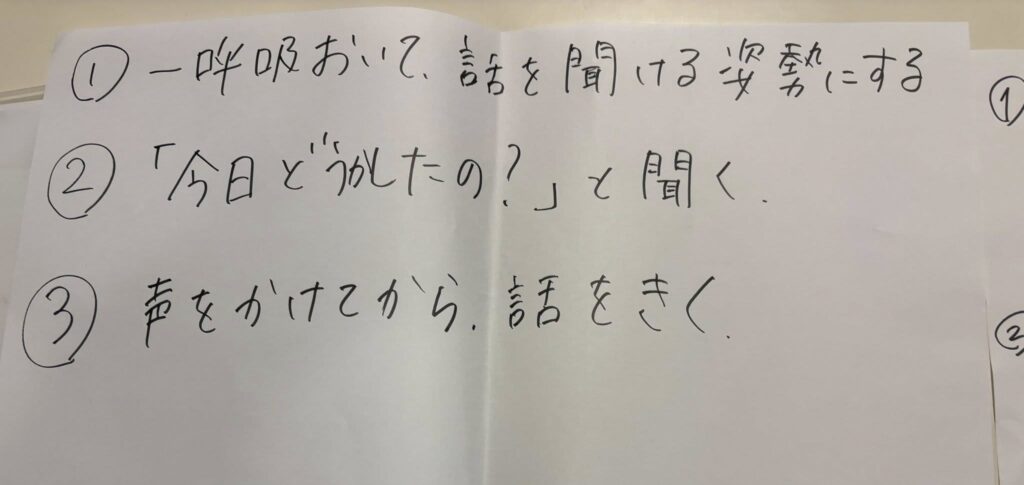 ① 一呼吸おいて、話を聞ける姿勢にする
② 「今日どうかしたの?」と聞く.
③ 声をかけてから、話をきく.
①
②